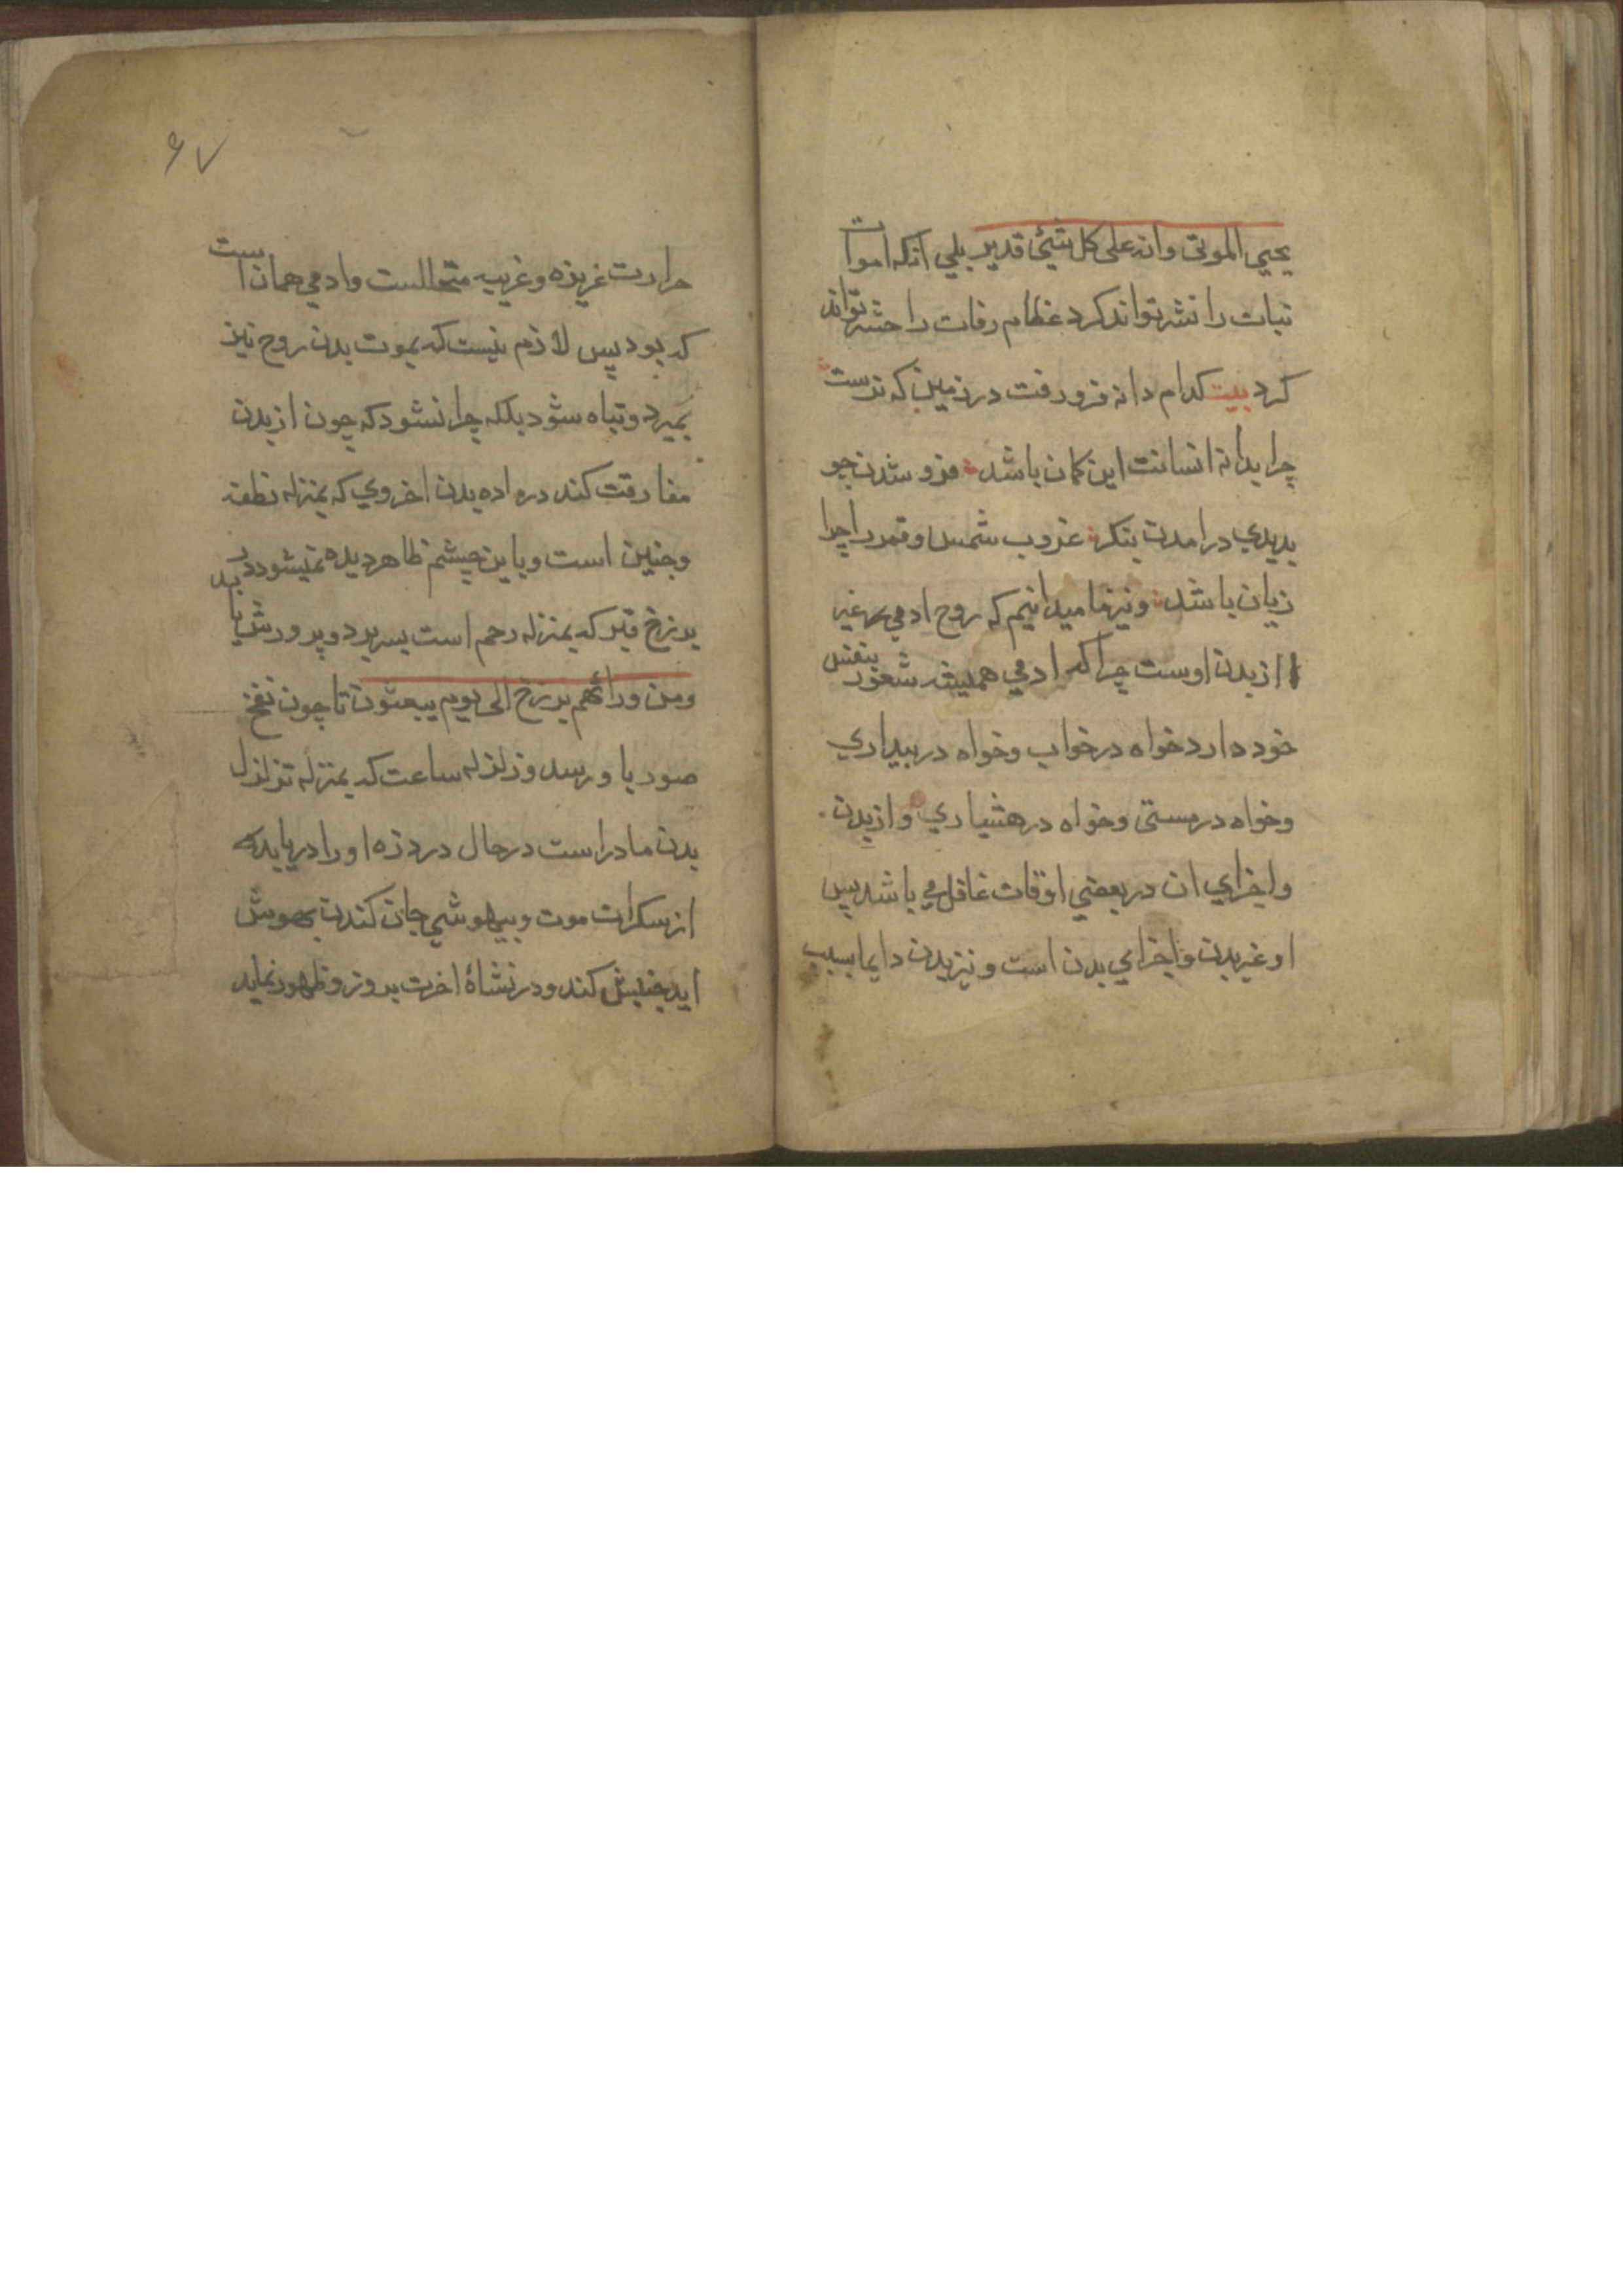 یحیی الموتی وانه علی کل شیئ قدیر بلی انکه اموات
نبات را نشر تواند کرد عظام رفات را حشر تواند
کرد بیت کدام دانه فرو رفت در زمین که نرست
چرا بدانه انسانت این کمان باشد فرو شدن چو
بدیدی درامدن بنکر غروب شمس و قمر را چرا
زیان باشد و نیز ما میدانیم که روح ادمی غیر
از بدن اوست چرا که ادمی همیشه شعور بنفس
خود دارد خواه در خواب و خواه در بیداری
وخواه در مستی وخواه در هشیاری و از بدن
واجزای ان در بعضی اوقات غافل می باشد پس
او غیر بدن واجزای بدن است و نیز بدن دایما بسبب
۶۷
حرارت غریزه و غریبه متحللست وادمی همان است
که بود پس لازم نیست که بموت بدن روح نیز
بمیرد و تباه شود بلکه چرا نشود که چون از بدن
مفارقت کند در ماده بدن اخروی که بمنزله نطفه
وجنین است و باین چشم ظاهر دیده نمیشود در
برزخ قبر که بمنزله رحم است بسر برد و پرورش یابد
ومن ورائهم برزخ الی یوم یبعثون تا چون نفخ
صور باو رسد و زلزله ساعت که بمنزله تزلزل
بدن مادر است در حال درد زه او را دریابد که
از سکرات موت و بیهوشی جان کندن بهوش
اید جنبش کند و در نشاۀ اخرت بروز و ظهور نماید